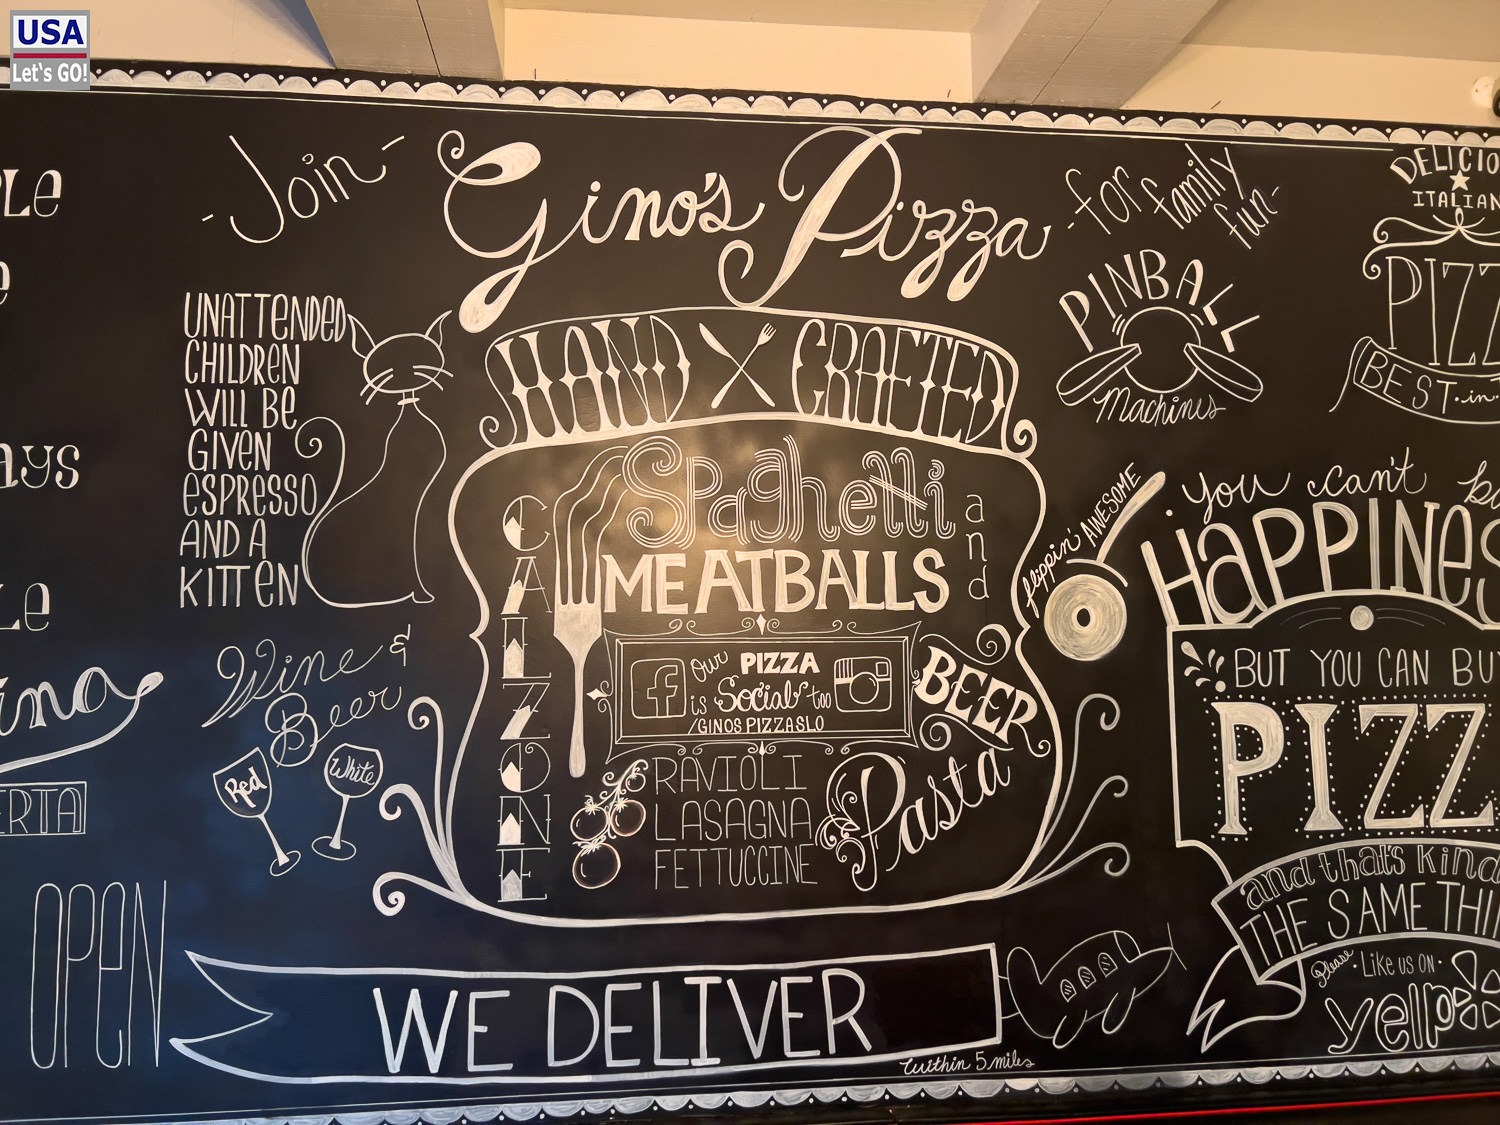 USA
Let's GO!
-Join-
Gino's Pizza
-for family fun-
HAND CRAFTED
UNATTENDED
CHILDREN
WILL BE
GIVEN
ESPRESSO
AND A
KITTEN
Wine &
Beer
Red
White
CALZONE
Spaghetti
and
MEATBALLS
Our PIZZA
is Social too
/GINOSPIZZASLO
BEER
RAVIOLI
LASAGNA
FETTUCCINE
Pasta
PINBALL
Machines
flippin' AWESOME
DELICIO
ITALIAN
PIZZ
BEST in
You can't bu
HAPPINES
BUT YOU CAN BUY
PIZZ
and that's kind
THE SAME THI
Please
Like us on
yelp
LE
e
AYS
LE
ina
ERTA
OPEN
WE DELIVER
within 5 miles